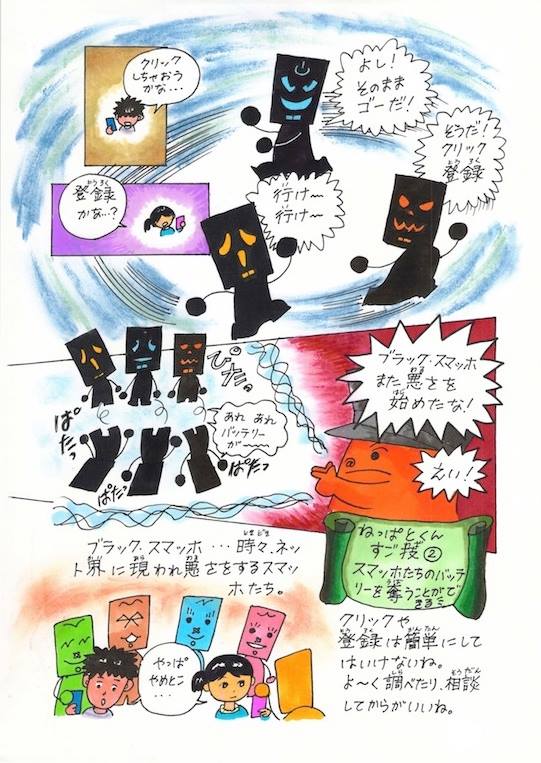 クリック
しちゃおう
かな・・・
よし!
そのまま
ゴーだ!
そうだ!
クリック
登録
登録
かな・・・?
行け〜
行け〜
ぴたっ
ぱたっ
あれ あれ
バッテリー
が〜〜
ぱたっ
ぱたっ
ブラック・スマッホ
また悪さを
始めたな!
えい!
ねっぱとくん
すご技②
スマッホたちのバッテ
リーを奪うことがで
きる
ブラック、スマッホ・・・時々、ネッ
ト界に現われ悪さをするスマッ
ホたち。
やっぱ
やめとこ
・・・
クリックや
登録は簡単にして
はいけないね。
よ〜く調べたり、相談
してからがいいね。